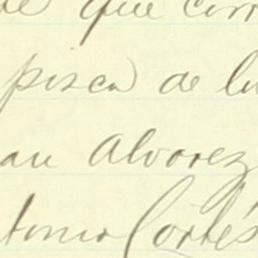 de que corr
pisca de lu
au Alvarez
tonio Cortés